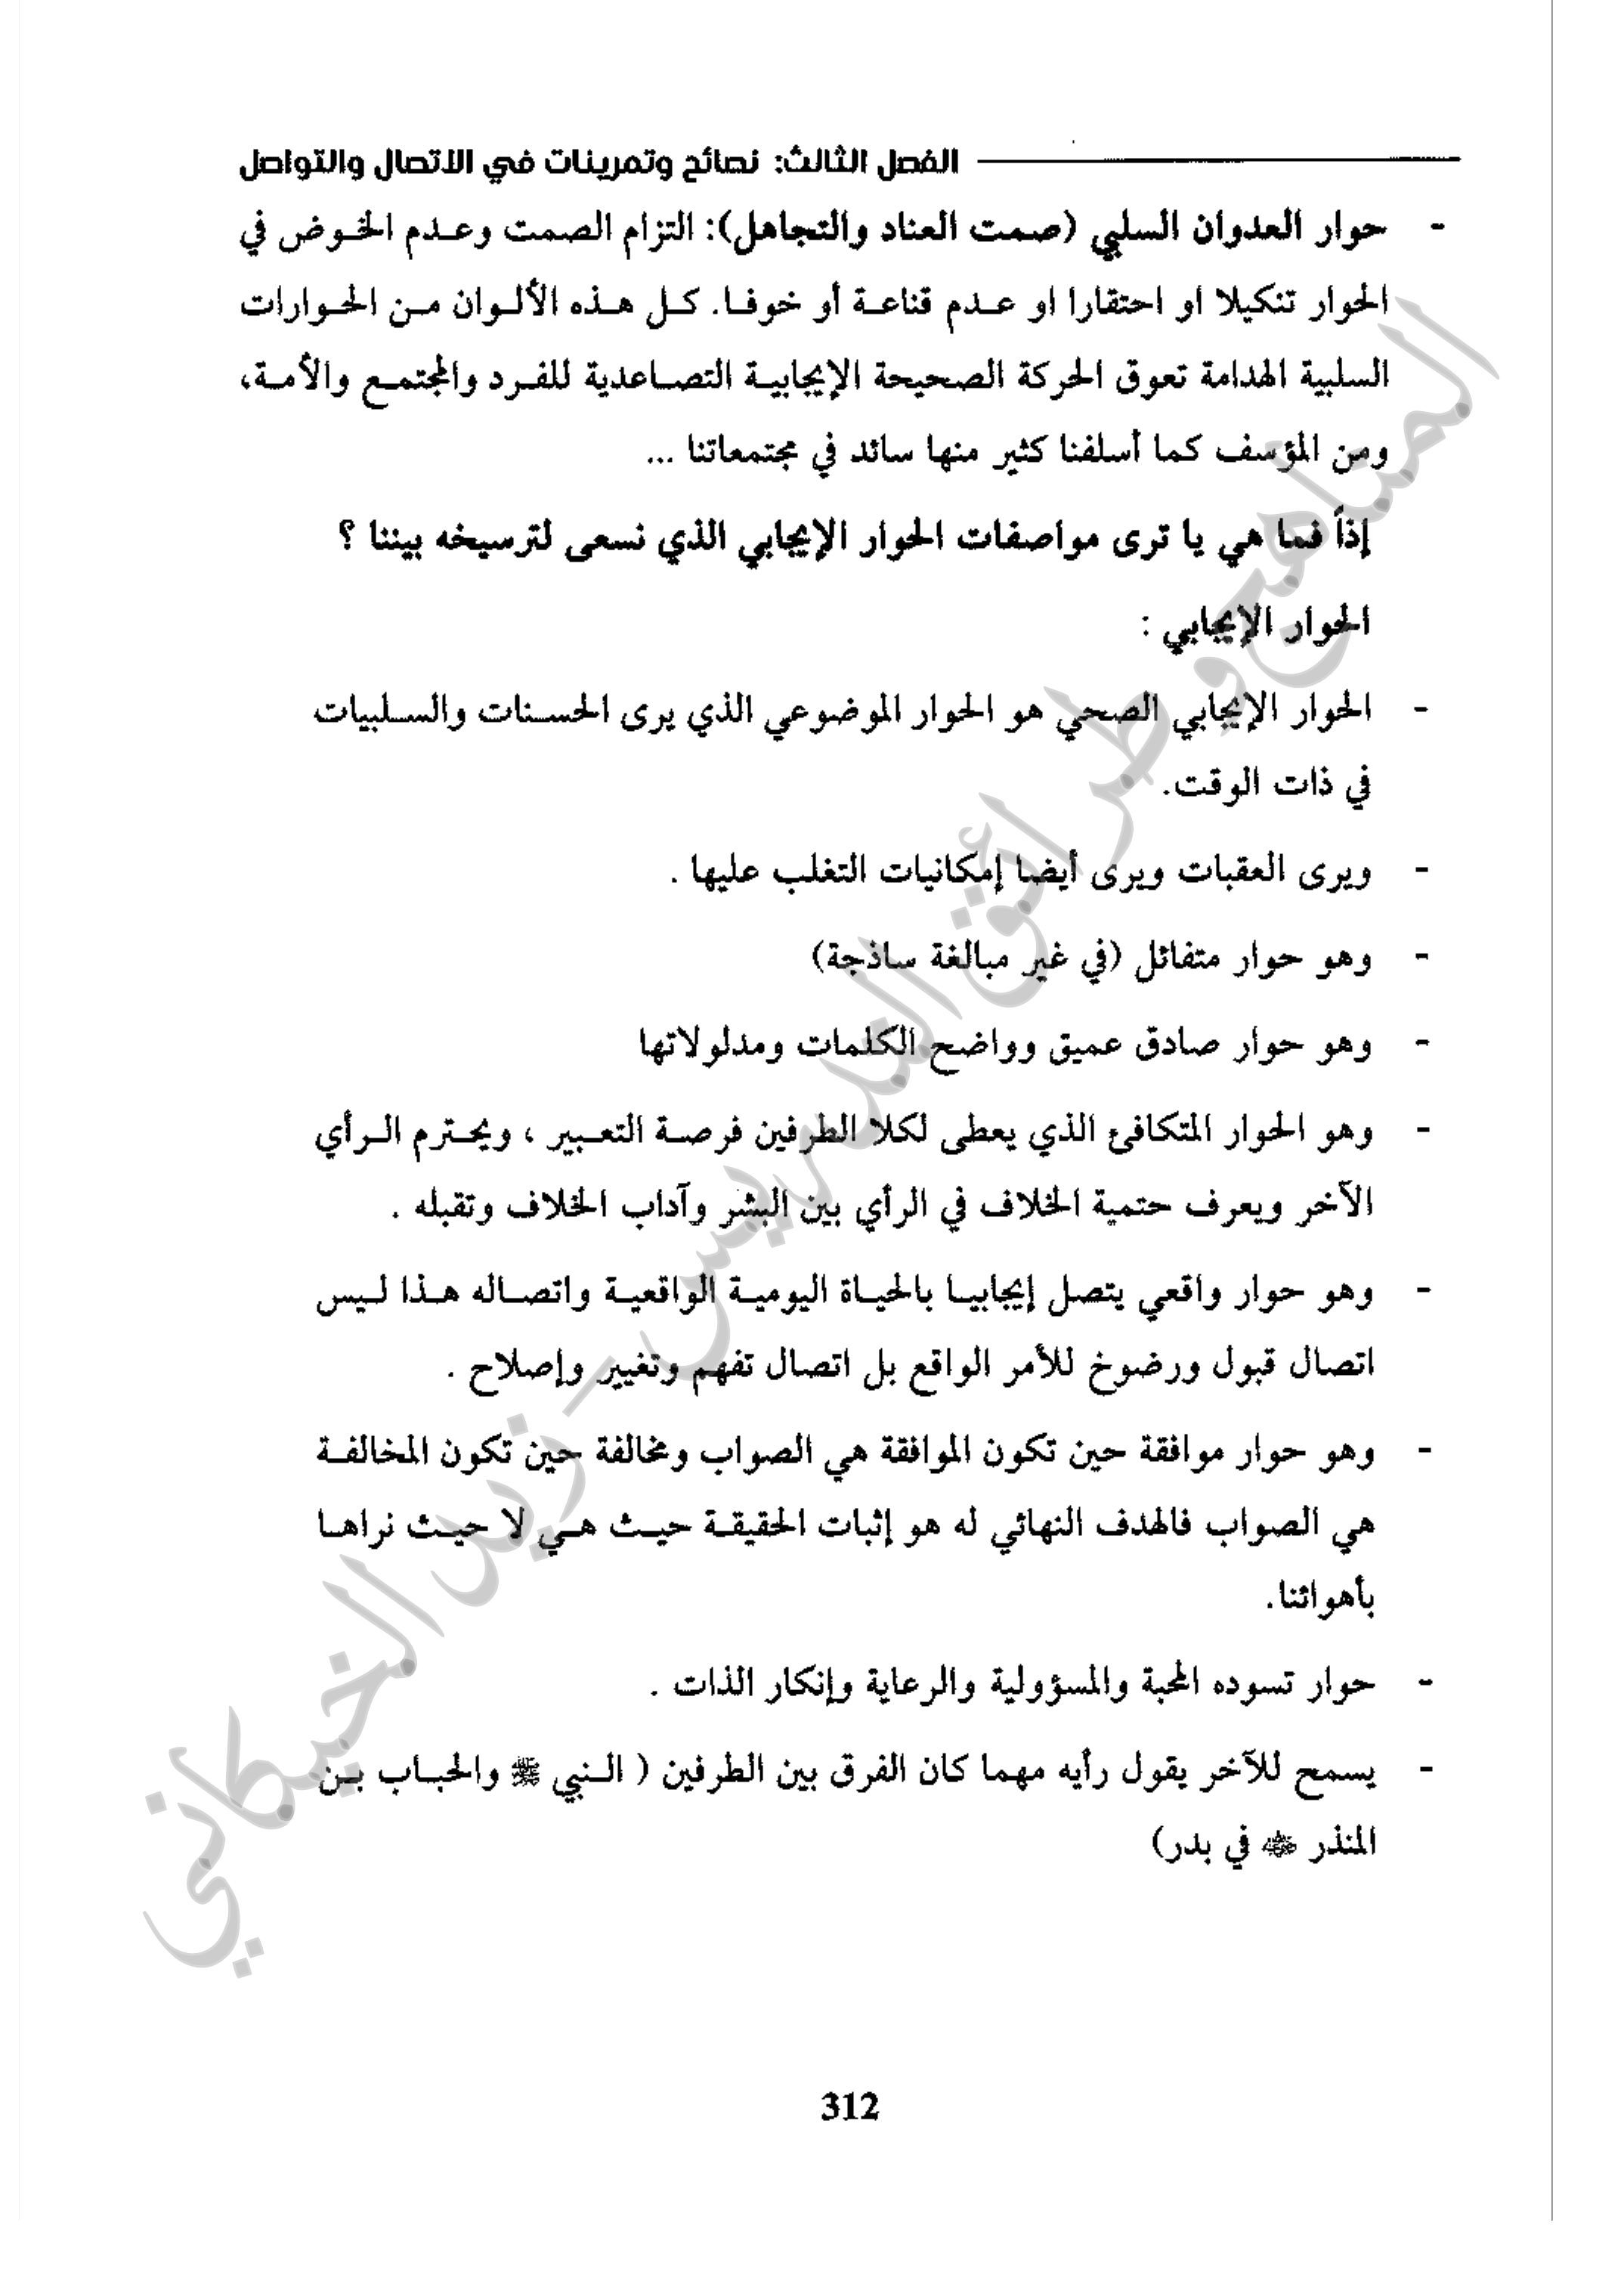 الفصل الثالث: نصائح وتمرينات في الاتصال والتواصل
- حوار العدوان السلبي (صمت العناد والتجاهل): التزام الصمت وعدم الخوض في
الحوار تنكيلا او احتقارا او عدم قناعة أو خوفا. كل هذه الألوان من الحوارات
السلبية الهدامة تعوق الحركة الصحيحة الإيجابية التصاعدية للفرد والمجتمع والأمة،
ومن المؤسف كما أسلفنا كثير منها سائد في مجتمعاتنا ...
إذاً فما هي يا ترى مواصفات الحوار الإيجابي الذي نسعى لترسيخه بيننا ؟
الحوار الإيجابي :
- الحوار الإيجابي الصحي هو الحوار الموضوعي الذي يرى الحسنات والسلبيات
في ذات الوقت.
- ويرى العقبات ويرى أيضا إمكانيات التغلب عليها .
- وهو حوار متفائل (في غير مبالغة ساذجة)
- وهو حوار صادق عميق وواضح الكلمات ومدلولاتها
- وهو الحوار المتكافئ الذي يعطى لكلا الطرفين فرصة التعبير ، ويحترم الرأي
الآخر ويعرف حتمية الخلاف في الرأي بين البشر وآداب الخلاف وتقبله .
- وهو حوار واقعي يتصل إيجابيا بالحياة اليومية الواقعية واتصاله هذا ليس
اتصال قبول ورضوخ للأمر الواقع بل اتصال تفهم وتغيير وإصلاح .
- وهو حوار موافقة حين تكون الموافقة هي الصواب ومخالفة حين تكون المخالفة
هي الصواب فالهدف النهائي له هو إثبات الحقيقة حيث هي لا حيث نراها
بأهوائنا.
- حوار تسوده المحبة والمسؤولية والرعاية وإنكار الذات .
- يسمح للآخر يقول رأيه مهما كان الفرق بين الطرفين ( النبي ﷺ والحباب بن
المنذر ﷺ في بدر)
312
المناهج وطرائق التدريس - زيد الخيكاني